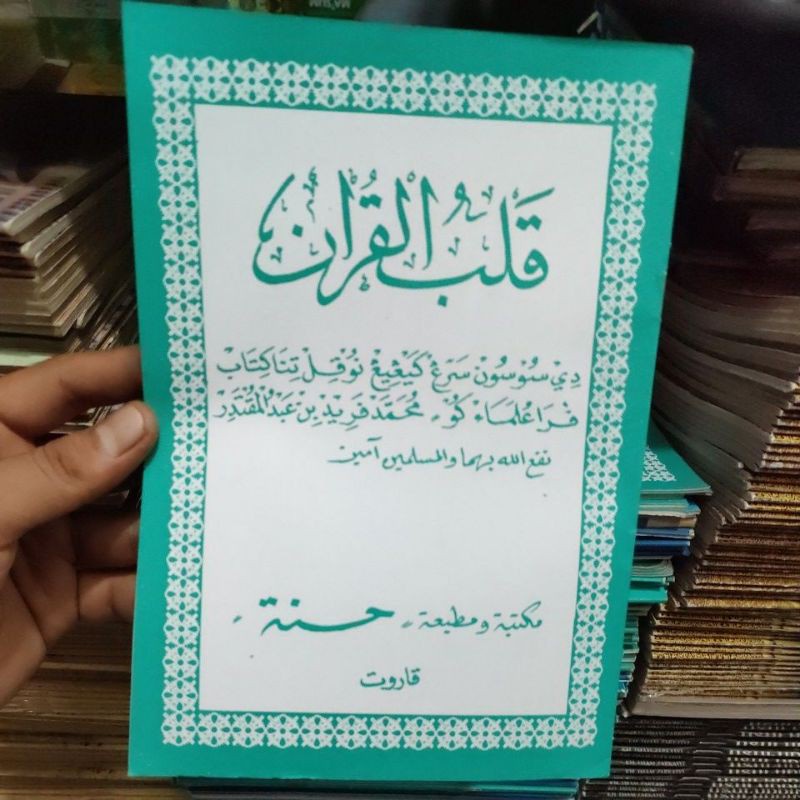 قَلْبُ الْقُرْاٰنِ
دِيْ سُوْسُوْنْ سَرَڠْ كَيْڠِيڠْ نُوْقِلْ تِنَا كِتَابْ
فَرَا عُلَمَاءْ كُوْ؍ مُحَمَّدْ فَرِيْدْ بِنْ عَبْدُ الْمُقْتَدِرْ
نفع الله بهما والمسلمين آمين
مكتبة ومطبعة ؍؍ حسنة ؍؍
قاروت